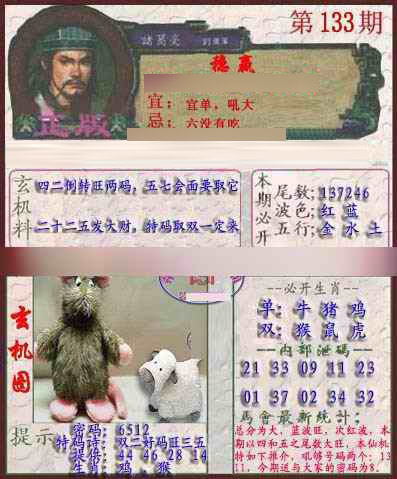 第133期
諸葛亮
稳赢
宜：宜单，吼大
忌：六没有吃
正版
玄机料
四二倒转旺两码，五七会面要取它
二十二五发大财，特码取双一定来
本期必开
尾数：137246
波色：红 蓝
五行：金 水 土
必开生肖
单：牛 猪 鸡
双：猴 鼠 虎
玄机图
内部泄码
21 33 09 11 23
01 37 02 34 32
馬會最新统計：
总分为大，蓝波旺，次红波，本
期以四和五之尾数大旺，本仙机
特如下推介，吼够号码两个：13
11，今期送与大家的密码为8．
提示
密码：6512
特码诗：双二好码旺三五
提倍：44 46 28 14
生肖：鸡，猴